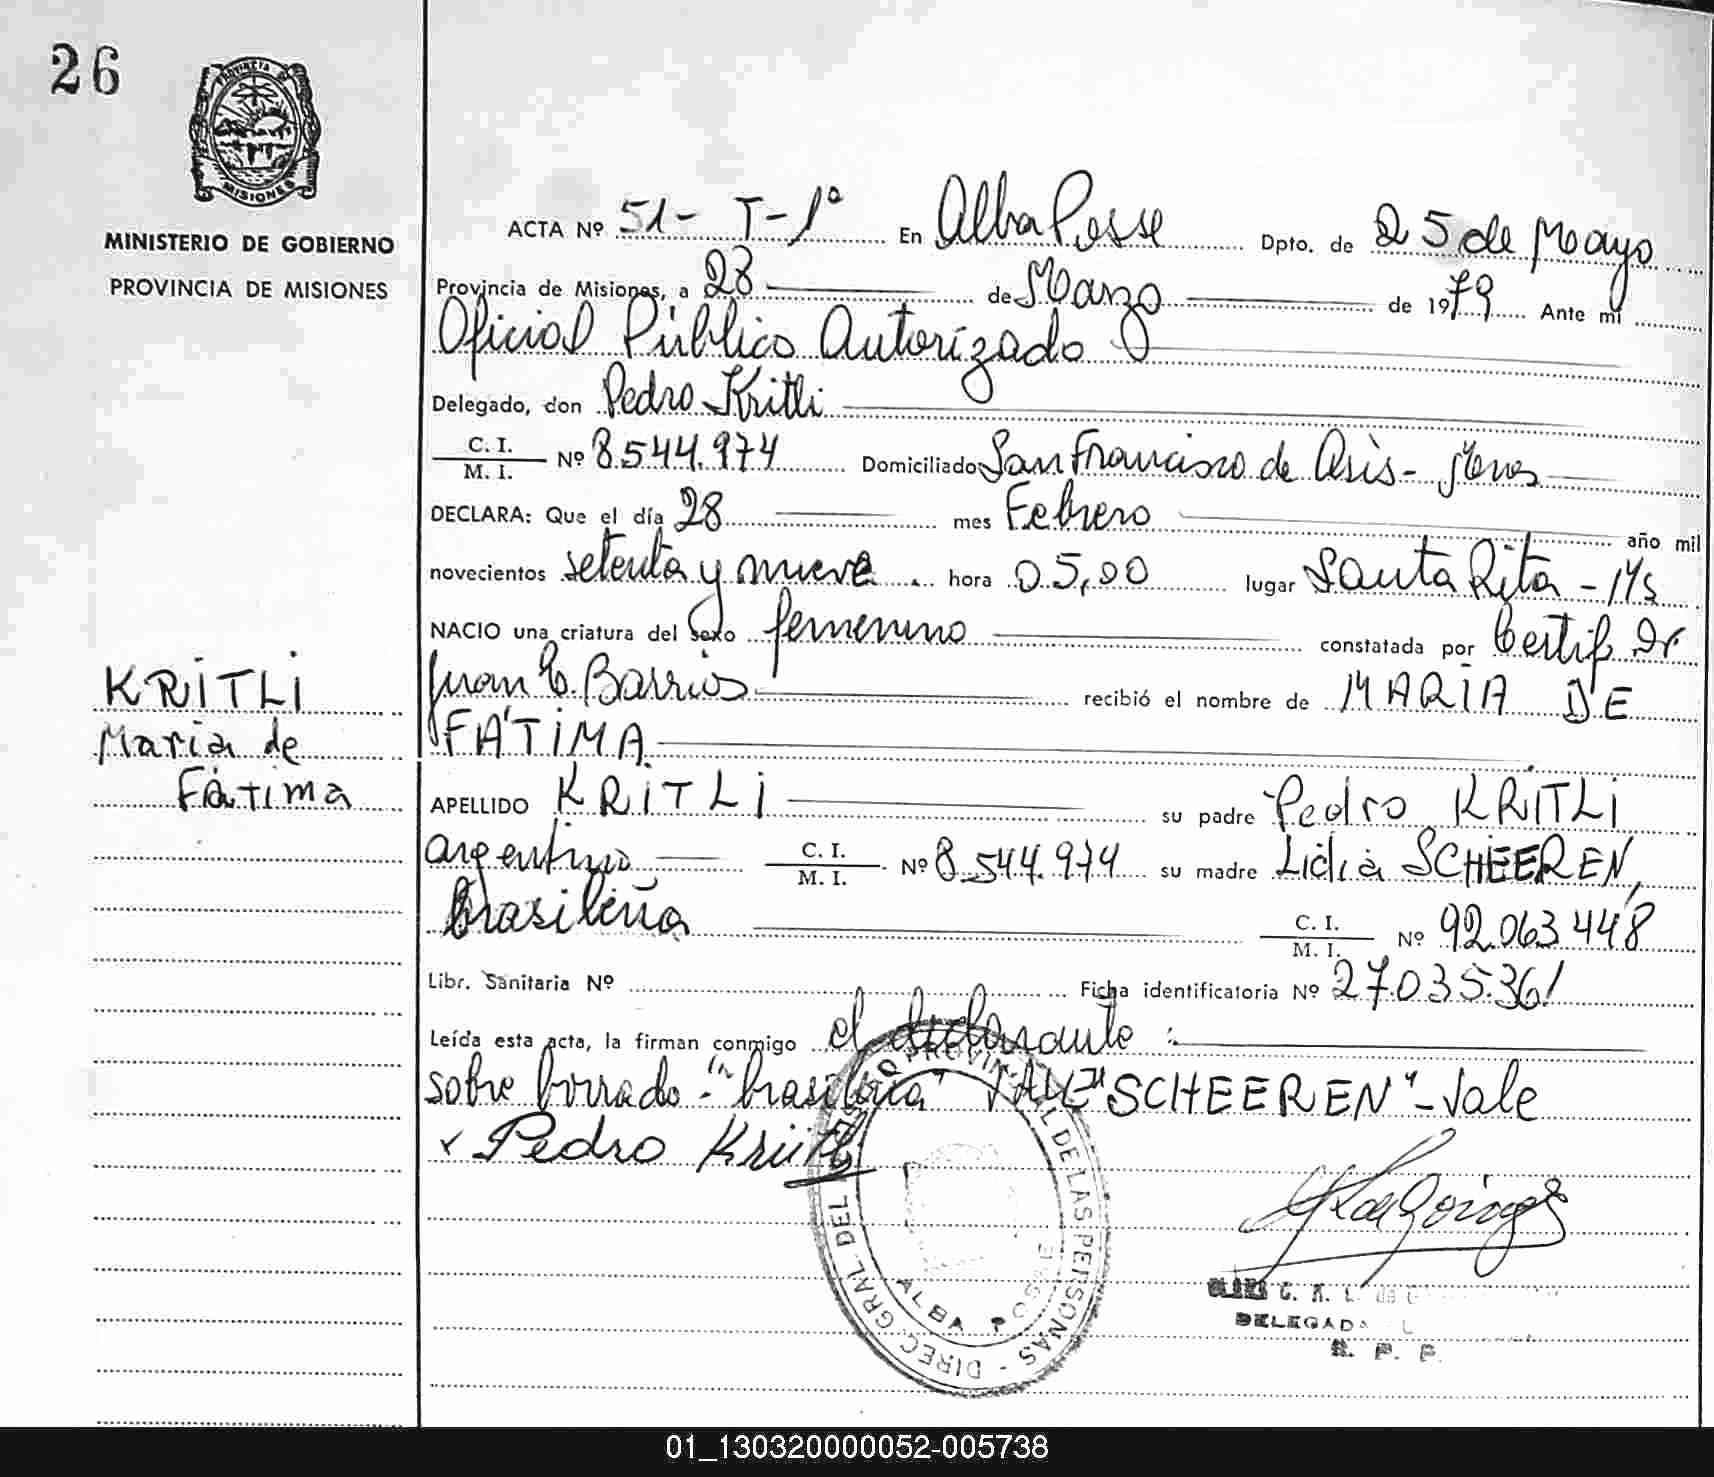 26
PROVINCIA DE
MISIONES
MINISTERIO DE GOBIERNO
PROVINCIA DE MISIONES
KRITLI
Maria de
Fátima
ACTA Nº 51- T-1º En Alba Posse Dpto. de 25 de Mayo
Provincia de Misiones, a 28 de Marzo de 1979 Ante mi
Oficial Público Autorizado
Delegado, don Pedro Kritli
C. I.
M. I. Nº 8.544.974 Domiciliado San Francisco de Asis - Mnes
DECLARA: Que el día 28 mes Febrero año mil
novecientos setenta y nueve hora 05,00 lugar Santa Rita - Ms
NACIO una criatura del sexo femenino constatada por Certif Dr
Juan C. Barrios recibió el nombre de MARIA DE
FÁTIMA
APELLIDO KRITLI su padre Pedro KRITLI
argentino C. I.
M. I. Nº 8.544.974 su madre Lidia SCHEEREN,
brasileña C. I.
M. I. Nº 92.063.448
Libr. Sanitaria Nº Ficha identificatoria Nº 27.035.361
Leída esta acta, la firman conmigo el declarante :
sobre borrado - "brasileña" "SCHEEREN" - Vale
x Pedro Kritli
DIREC. GRAL. DEL PROVINCIAL DE LAS PERSONAS -
ALBA POSSE
DELEGADA
R. P. P.
01_130320000052-005738